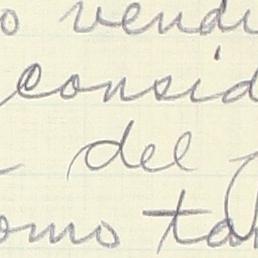 o vendi
consid
del
omo tal